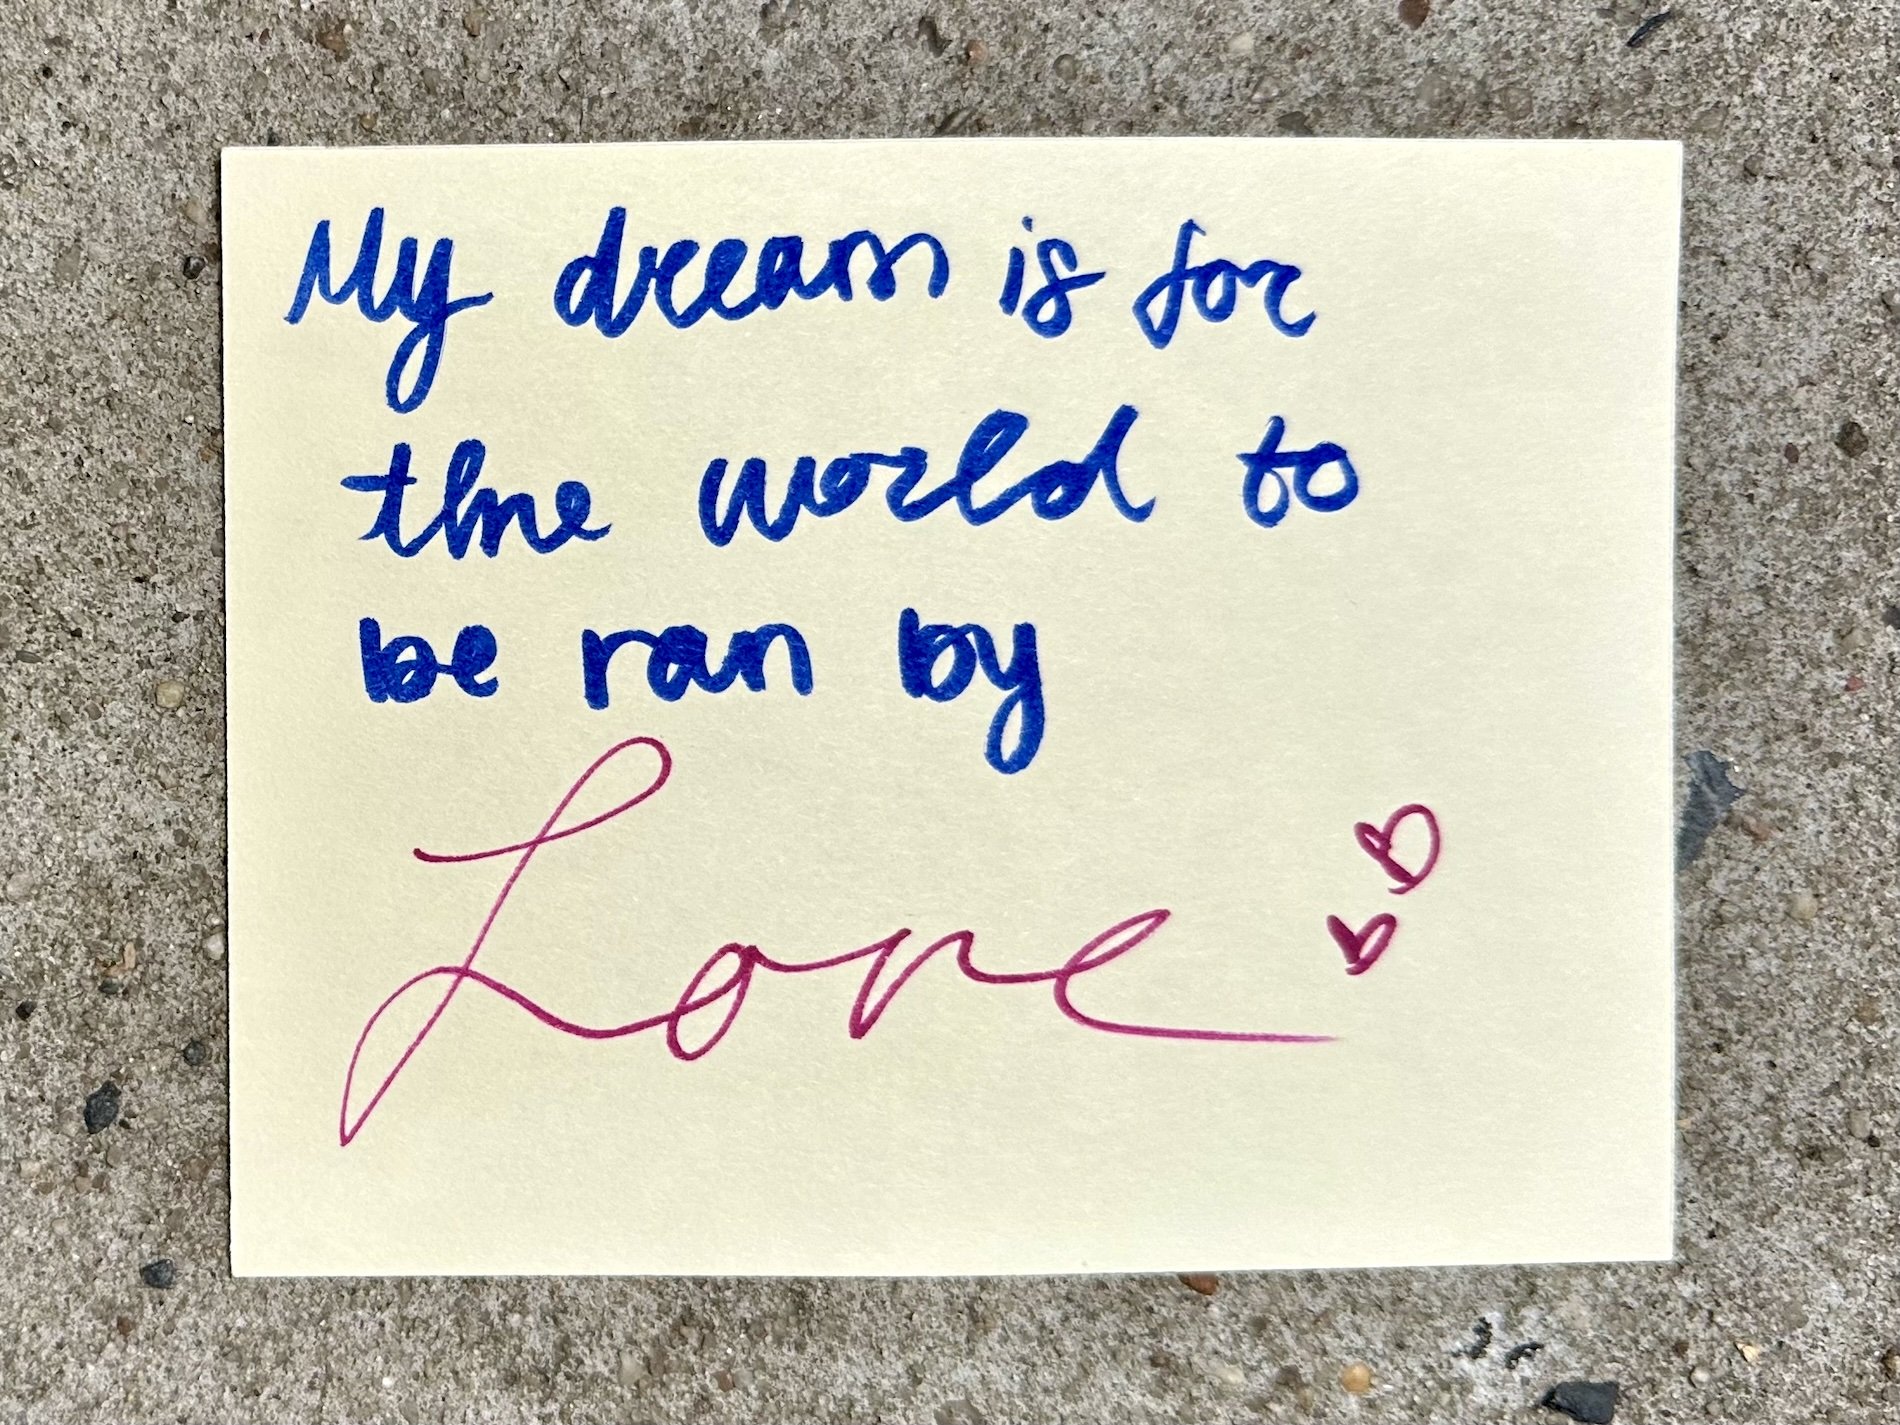 My dream is for
the world to
be ran by
Love